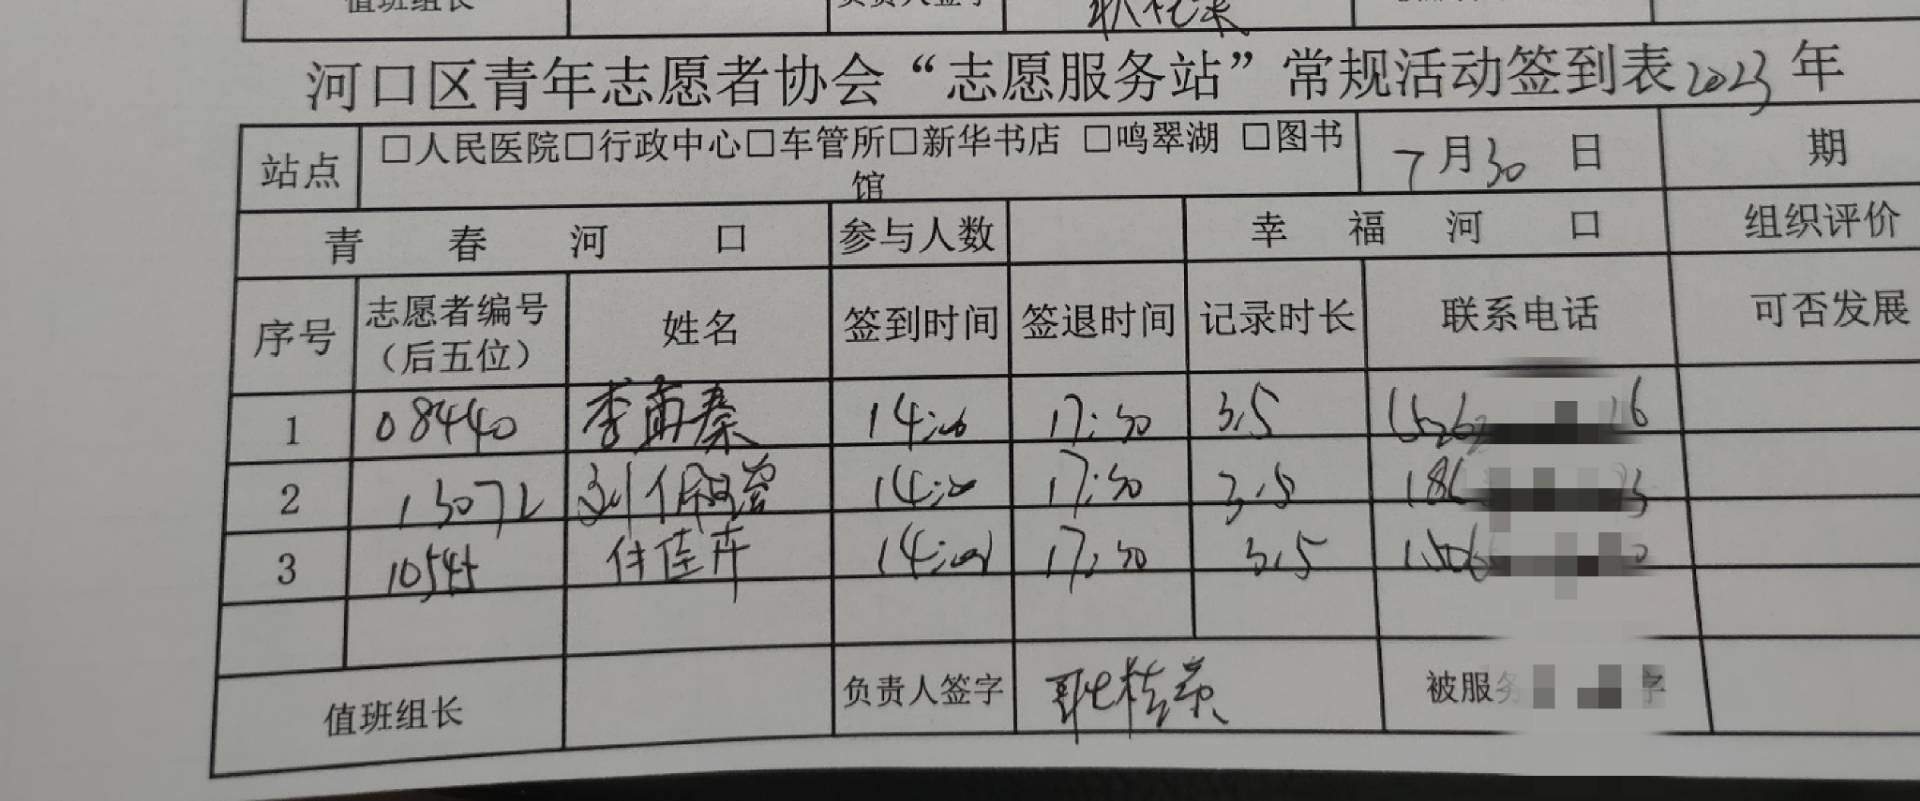 值班组长 负责人签字
河口区青年志愿者协会“志愿服务站”常规活动签到表2023年
站点 □人民医院□行政中心□车管所□新华书店 □鸣翠湖 □图书馆 7月30日 期
青春河口 参与人数 幸福河口 组织评价
序号 志愿者编号（后五位） 姓名 签到时间 签退时间 记录时长 联系电话 可否发展
1 08440 李 秦 14:00 17:30 3.5
2 13072 刘 14:00 17:30 3.5
3 10545 佳卉 14:00 17:30 3.5
值班组长 负责人签字 耿桂荣 被服务